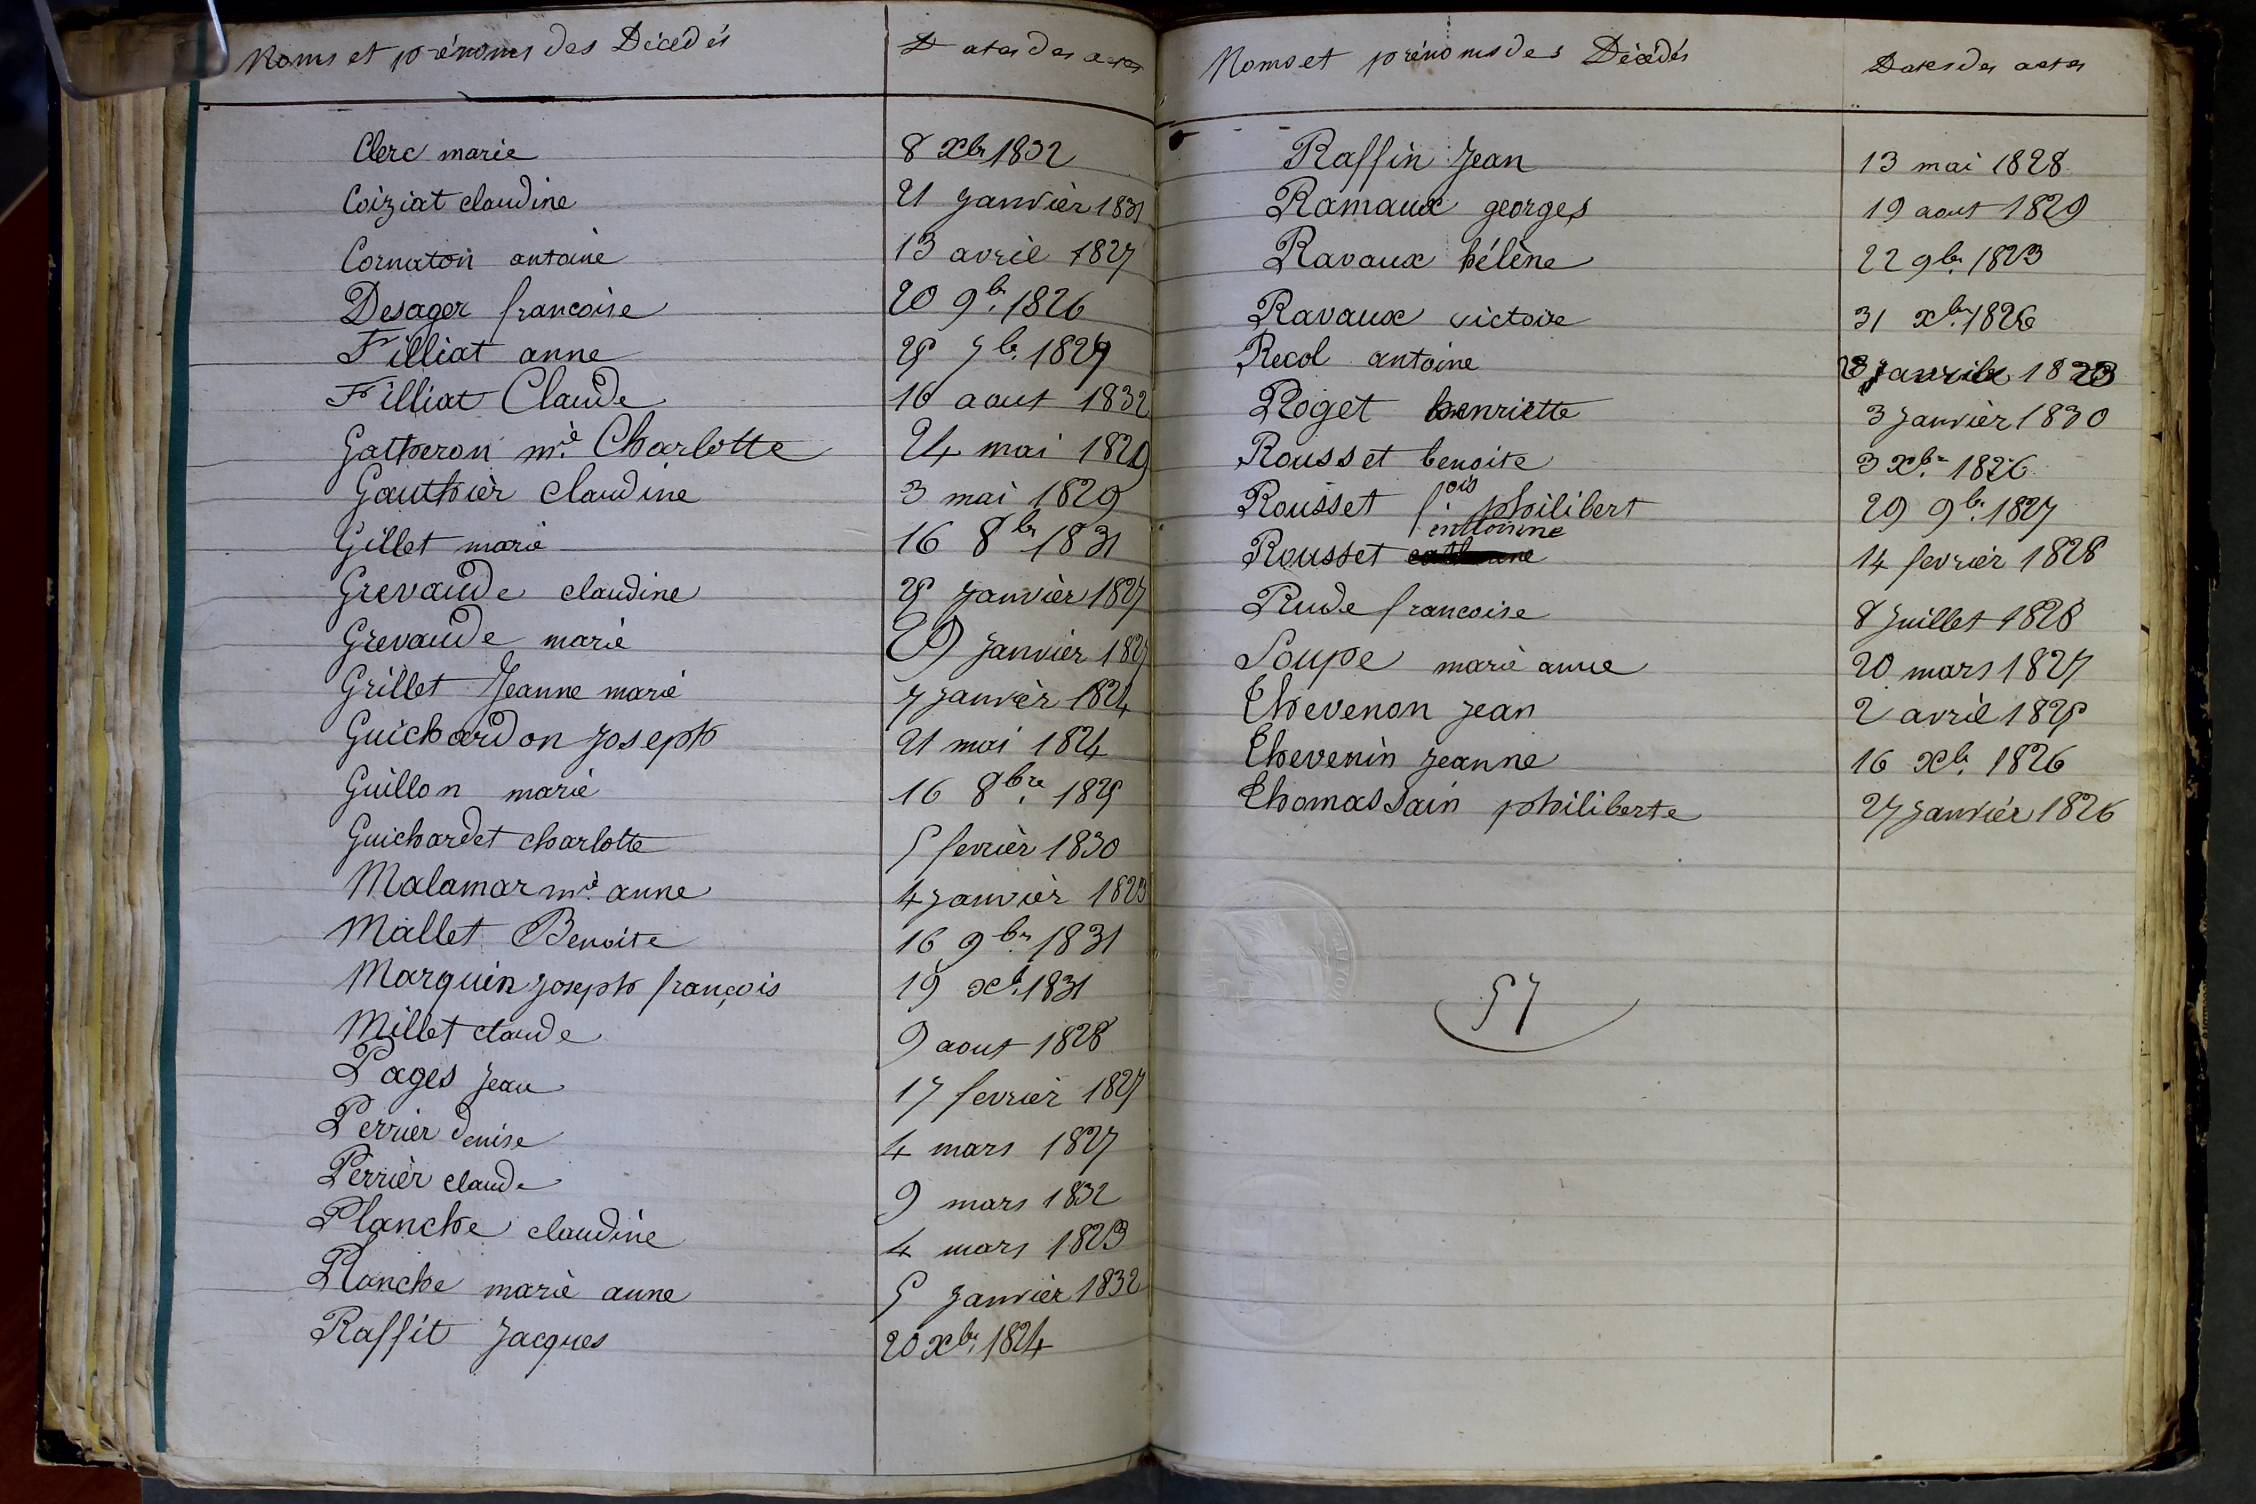 Noms et prénoms des Décédés Dates des actes
Clerc marie 8 Xbr 1832
Coiziat claudine 21 Janvier 1831
Cornaton antoine 13 avril 1827
Desager francoise 20 9br. 1826
Filliat anne 25 7br. 1827
Filliat Claude 16 aout 1832
Gatheron mie. Charlotte 24 mai 1829
Gauthier claudine 3 mai 1829
Gillet marie 16 8br 1831
Grevaude claudine 25 Janvier 1827
Grevaude marie 29 Janvier 1827
Grillet Jeanne marie 7 Janvier 1824
Guichardon Joseph 21 mai 1824
Guillon marie 16 8bre. 1825
Guichardet charlotte 5 fevrier 1830
Malamar mie. anne 4 Janvier 1823
Mallet Benoite 16 9br. 1831
Marquin Joseph françois 19 xb. 1831
Millet claude 9 aout 1828
Pages Jean 17 fevrier 1827
Perrier denise 4 mars 1827
Perrier claude 9 mars 1832
Planche claudine 4 mars 1823
Planche marie anne 5 Janvier 1832
Raffit Jacques 20 Xbr. 1824
Noms et prénoms des Décédés Dates des actes
Raffin Jean 13 mai 1828
Ramaux georges 19 aout 1829
Ravaux hélène 22 9br. 1823
Ravaux victoire 31 xbr. 1826
Recol antoine 1823
Roget henriette 3 Janvier 1830
Rousset benoite 3 Xbr. 1826
Rousset fois. philibert 29 9br. 1827
Rousset 14 fevrier 1828
Rude francoise 8 Juillet 1828
Soupe marie anne 20 mars 1827
Thevenon Jean 2 avril 1825
Thevenin Jeanne 16 Xbr. 1826
Thomassain philiberte 27 Janvier 1826
57